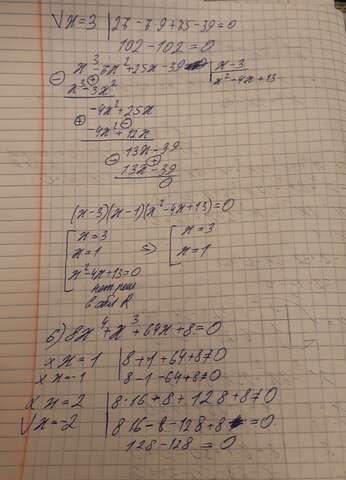 √ x=3 | 27-7·9+25-39=0
102-102=0
x³-7x²+25x-39 | x-3
x³-3x² | x²-4x+13
-4x²+25x
-4x²+12x
13x-39
13x-39
0
(x-3)(x-1)(x²-4x+13)=0
[ x=3 ⇒ [ x=3
x=1 x=1
x²-4x+13=0
нет реш
в обл R
б) 8x⁴+x³+64x+8=0
x x=1 | 8+1+64+8≠0
x x=-1 | 8-1-64+8≠0
x x=2 | 8·16+8+128+8≠0
√ x=-2 | 8·16-8-128+8=0
128-128=0